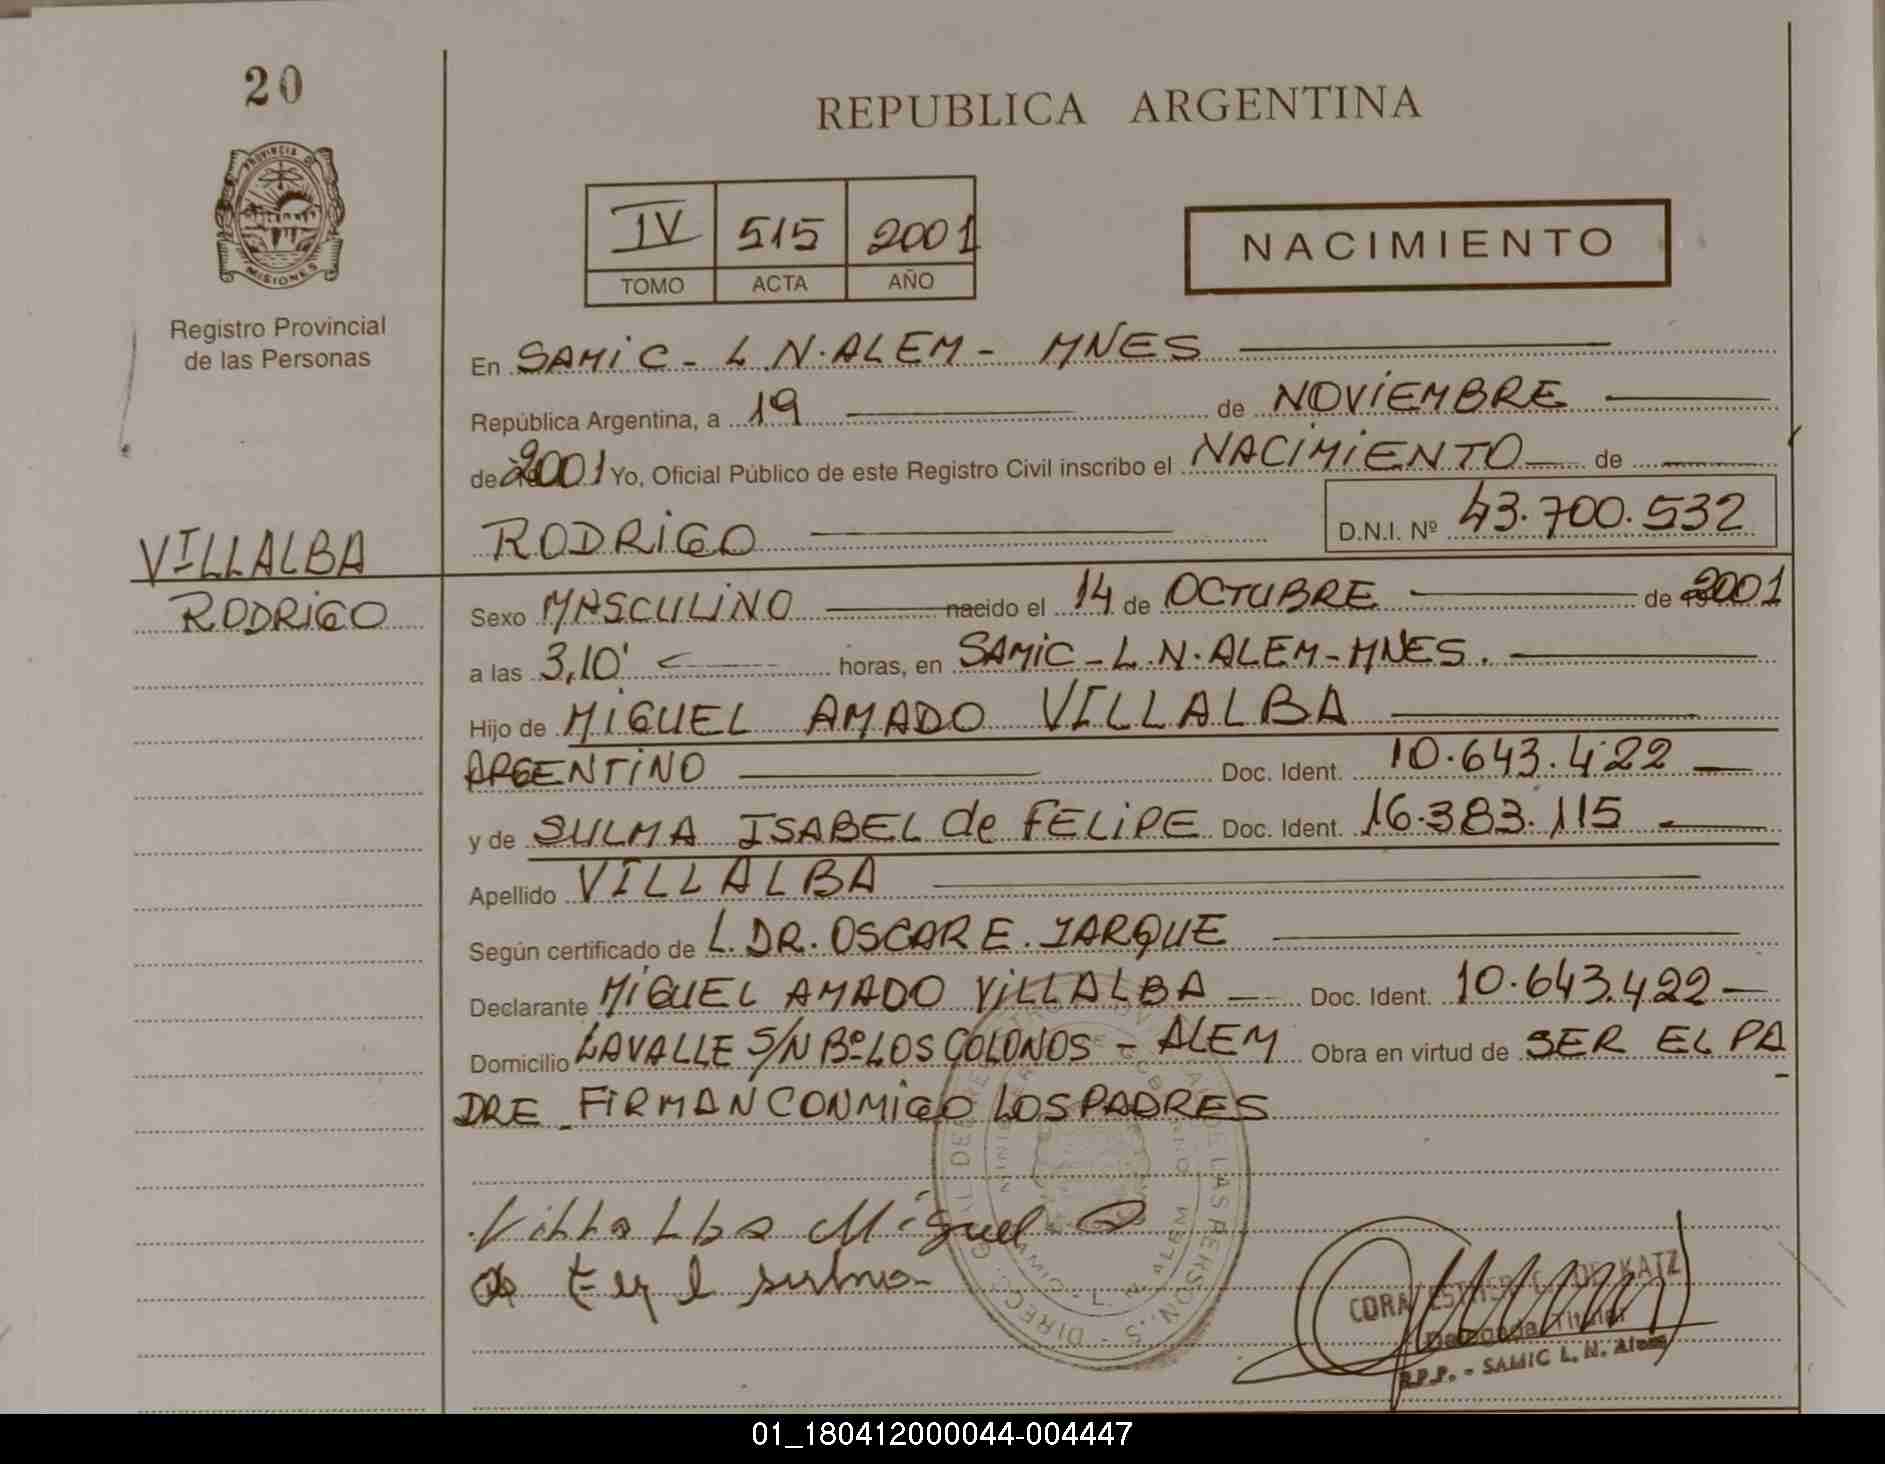 20
PROVINCIA DE
MISIONES
Registro Provincial
de las Personas
VILLALBA
RODRIGO
REPUBLICA ARGENTINA
IV 515 2001
TOMO ACTA AÑO
NACIMIENTO
En SAMIC - L.N.ALEM - MNES
República Argentina, a 19 de NOVIEMBRE
de 2001 Yo, Oficial Público de este Registro Civil inscribo el NACIMIENTO de
RODRIGO D.N.I. Nº 43.700.532
Sexo MASCULINO nacido el 14 de OCTUBRE de 2001
a las 3,10' horas, en SAMIC - L.N.ALEM - MNES.
Hijo de MIGUEL AMADO VILLALBA
ARGENTINO Doc. Ident. 10.643.422
y de SULMA ISABEL de FELIPE Doc. Ident. 16.383.115
Apellido VILLALBA
Según certificado de L. DR. OSCAR E. JARQUE
Declarante MIGUEL AMADO VILLALBA Doc. Ident. 10.643.422
Domicilio LAVALLE S/N Bº LOS COLONOS - ALEM Obra en virtud de SER EL PA
DRE _ FIRMAN CONMIGO LOS PADRES
Villalba Miguel
CORA ESTHER C. DE KATZ
Delegada Titular
R.P.P. - SAMIC L. N. Alem
01_180412000044-004447